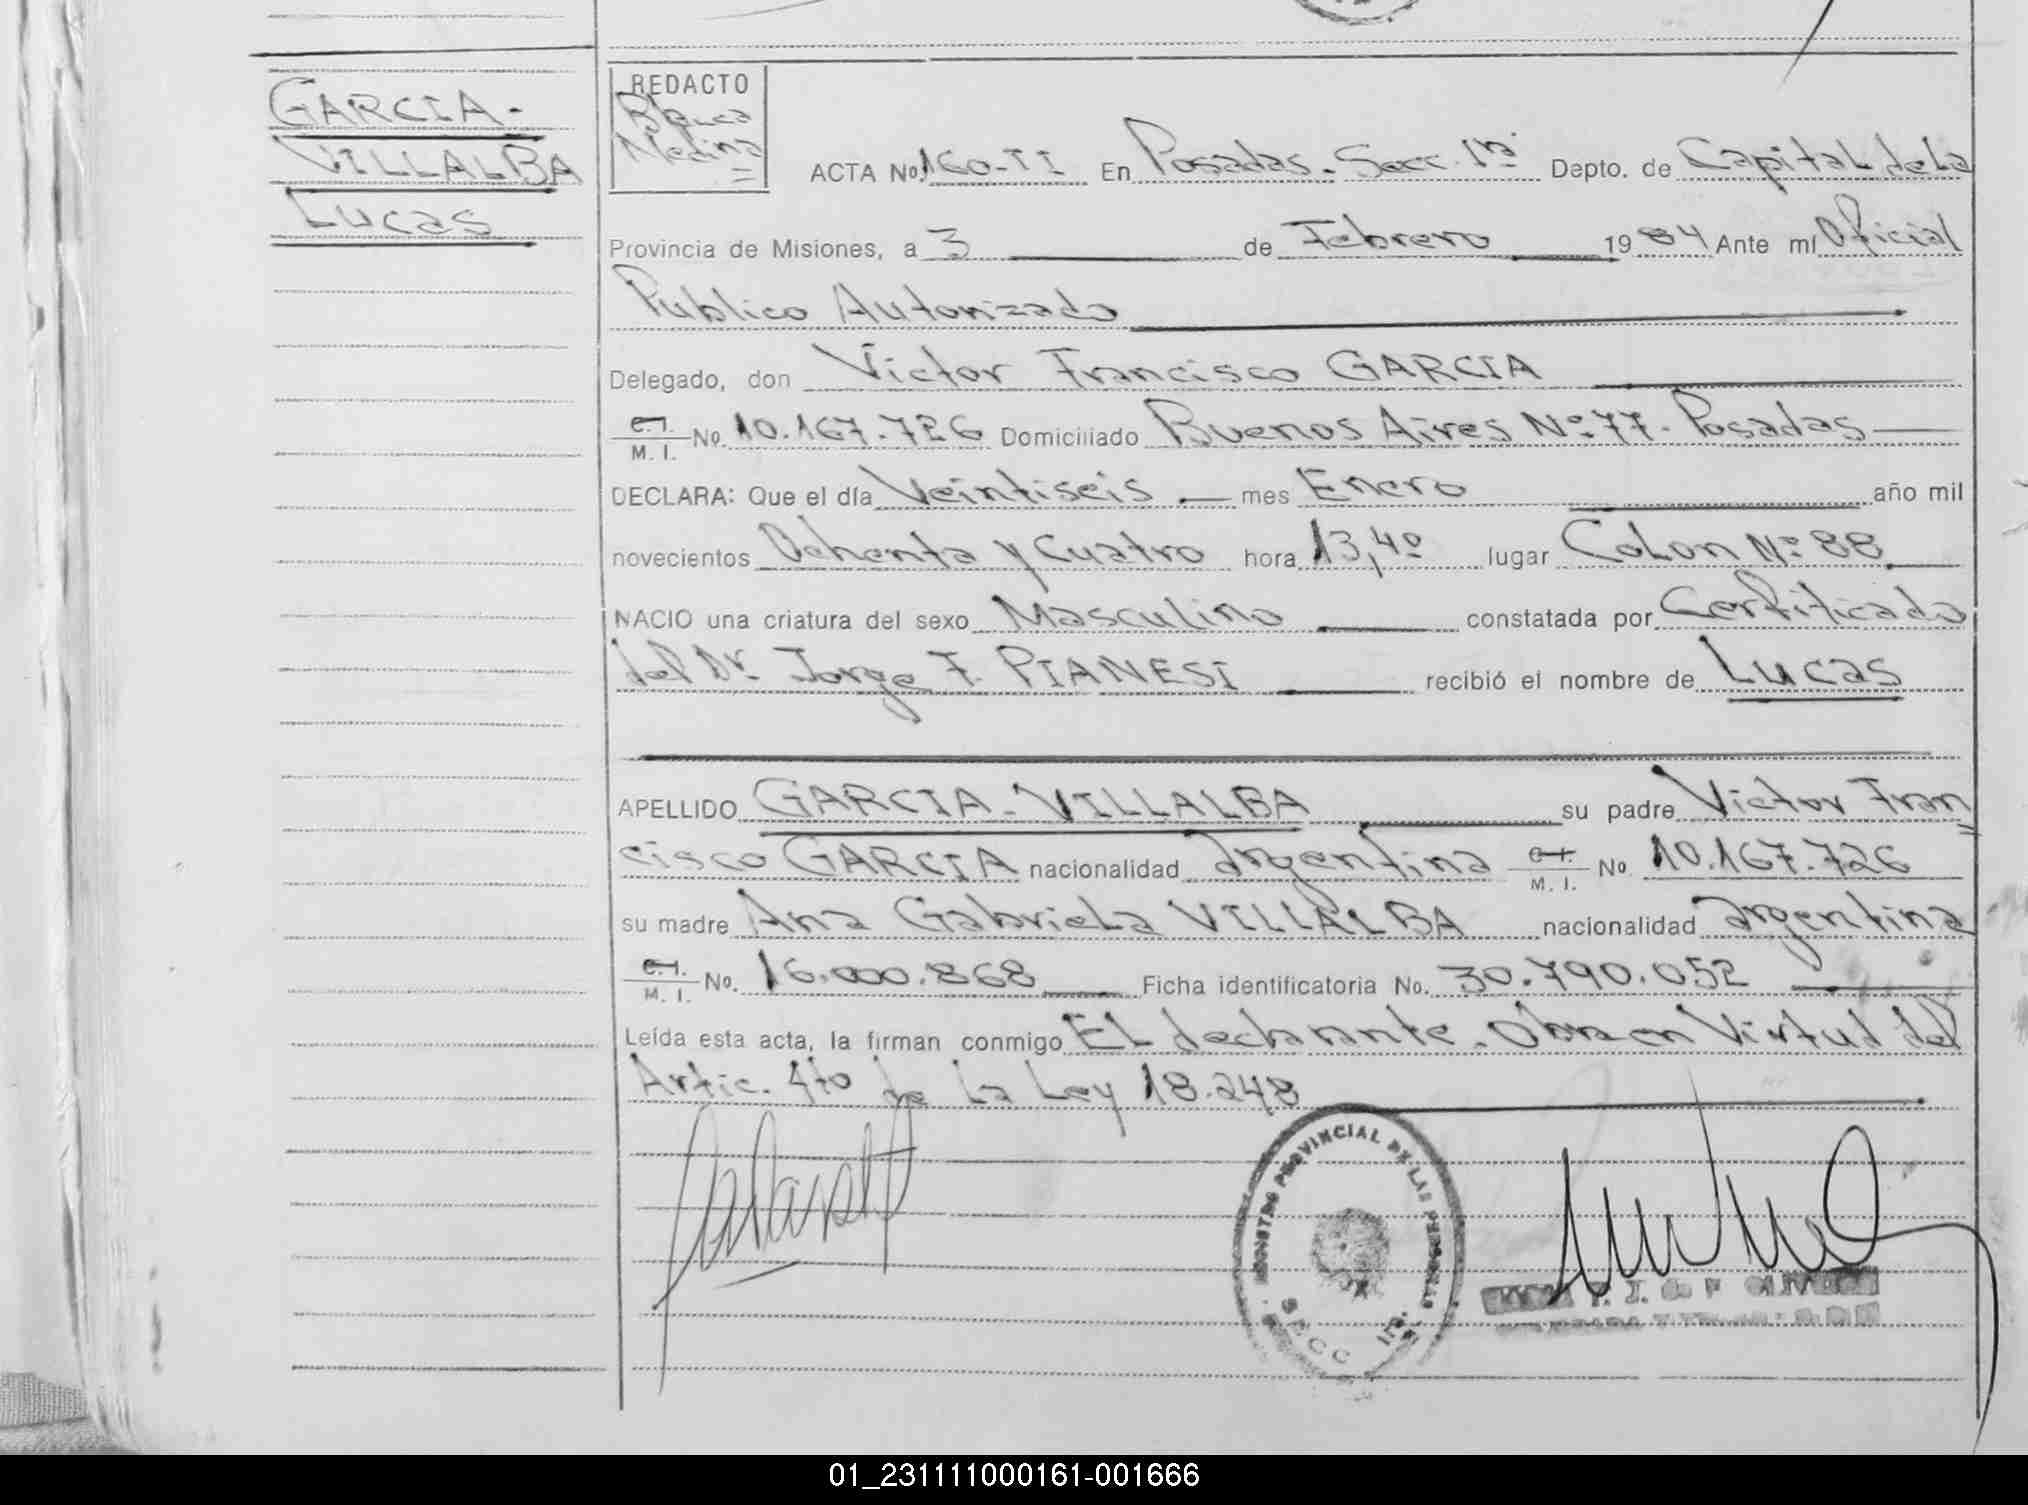 GARCIA-
VILLALBA
Lucas
REDACTO
Blanca
Medina
ACTA No. 160-II En Posadas. Secc. 1ra Depto. de Capital de la
Provincia de Misiones, a 3 de Febrero 1984 Ante mí Oficial
Publico Autorizado
Delegado, don Victor Francisco GARCIA
C.I.
M. I. No. 10.167.726 Domiciliado Buenos Aires Nº 77. Posadas
DECLARA: Que el día Veintiseis mes Enero año mil
novecientos Ochenta y Cuatro hora 13,40 lugar Colon Nº 88
NACIO una criatura del sexo Masculino constatada por Certificado
del Dr. Jorge F. PIANESI recibió el nombre de Lucas
APELLIDO GARCIA-VILLALBA su padre Victor Fran
cisco GARCIA nacionalidad argentina C.I.
M. I. No. 10.167.726
su madre Ana Gabriela VILLALBA nacionalidad argentina
C.I.
M. I. No. 16.000.868 Ficha identificatoria No. 30.790.052
Leída esta acta, la firman conmigo El declarante. Obra en Virtud del
Artic. 4to de La Ley 18.248
REGISTRO PROVINCIAL DE LAS PERSONAS
SECC 1ra.
01_231111000161-001666